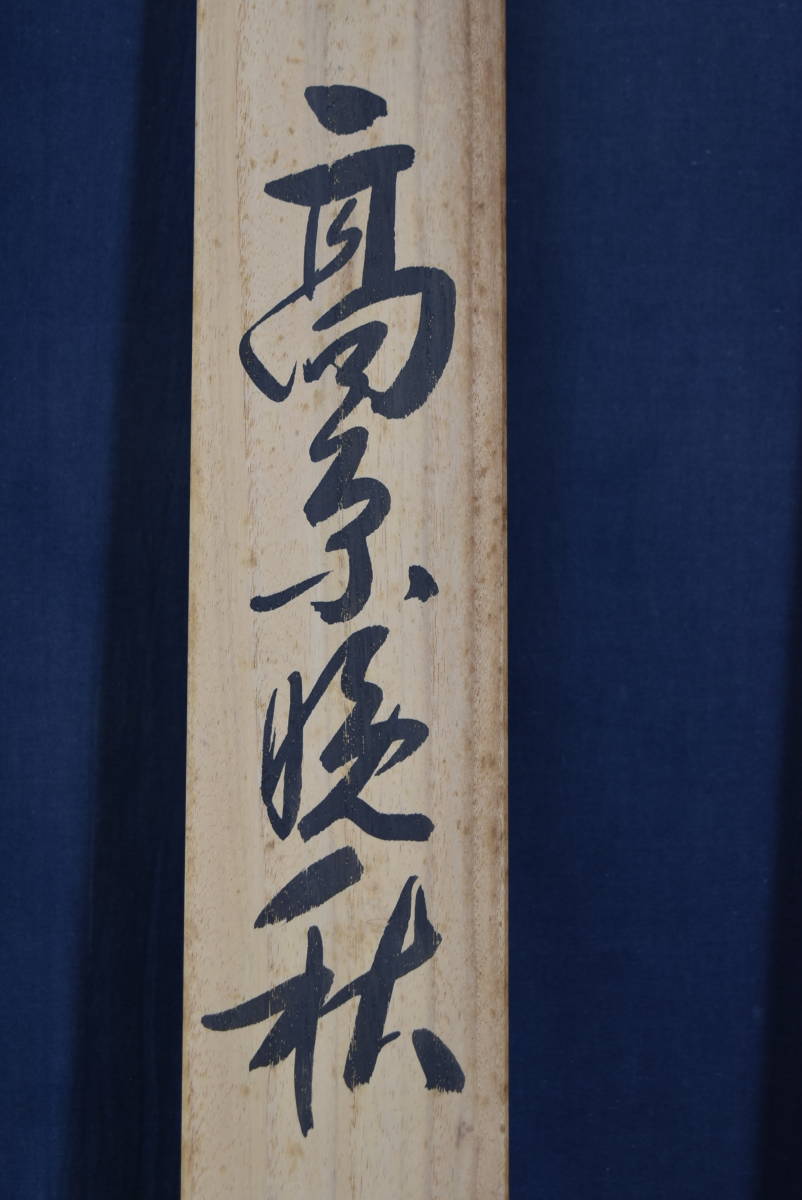 高原晩秋